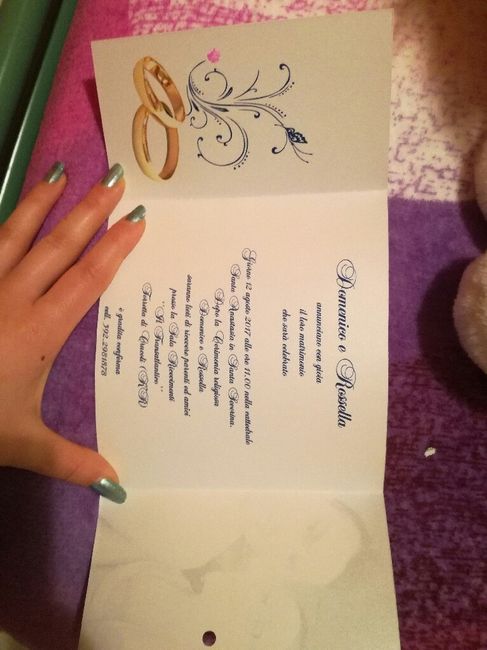 Domenico e Rossella
annunciano con gioia
il loro matrimonio
che sarà celebrato
Giorno 12 agosto 2017 alle ore 11.00 nella cattedrale
Santa Anastasia in Santa Severina.
Dopo la Cerimonia religiosa
Domenico e Rossella
saranno lieti di ricevere parenti ed amici
presso la Sala Ricevimenti
"Il Transatlantico"
Torretta di Crucoli (KR)
è gradita conferma
cell. 392.2981678